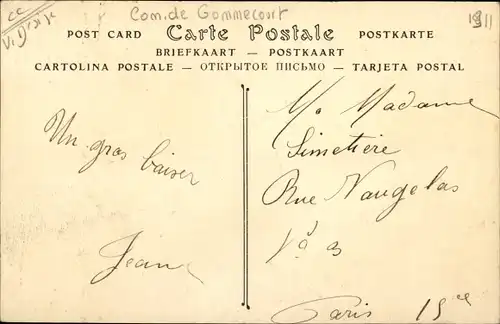 Com. de Gommecourt
1911
POST CARD Carte Postale POSTKARTE
BRIEFKAART — POSTKAART
CARTOLINA POSTALE — ОТКРЫТОЕ ПИСЬМО — TARJETA POSTAL
Un gros baiser
Jeanne
M. Madame
Simetiere
Rue Vaugelas
No 3
Paris 15eme